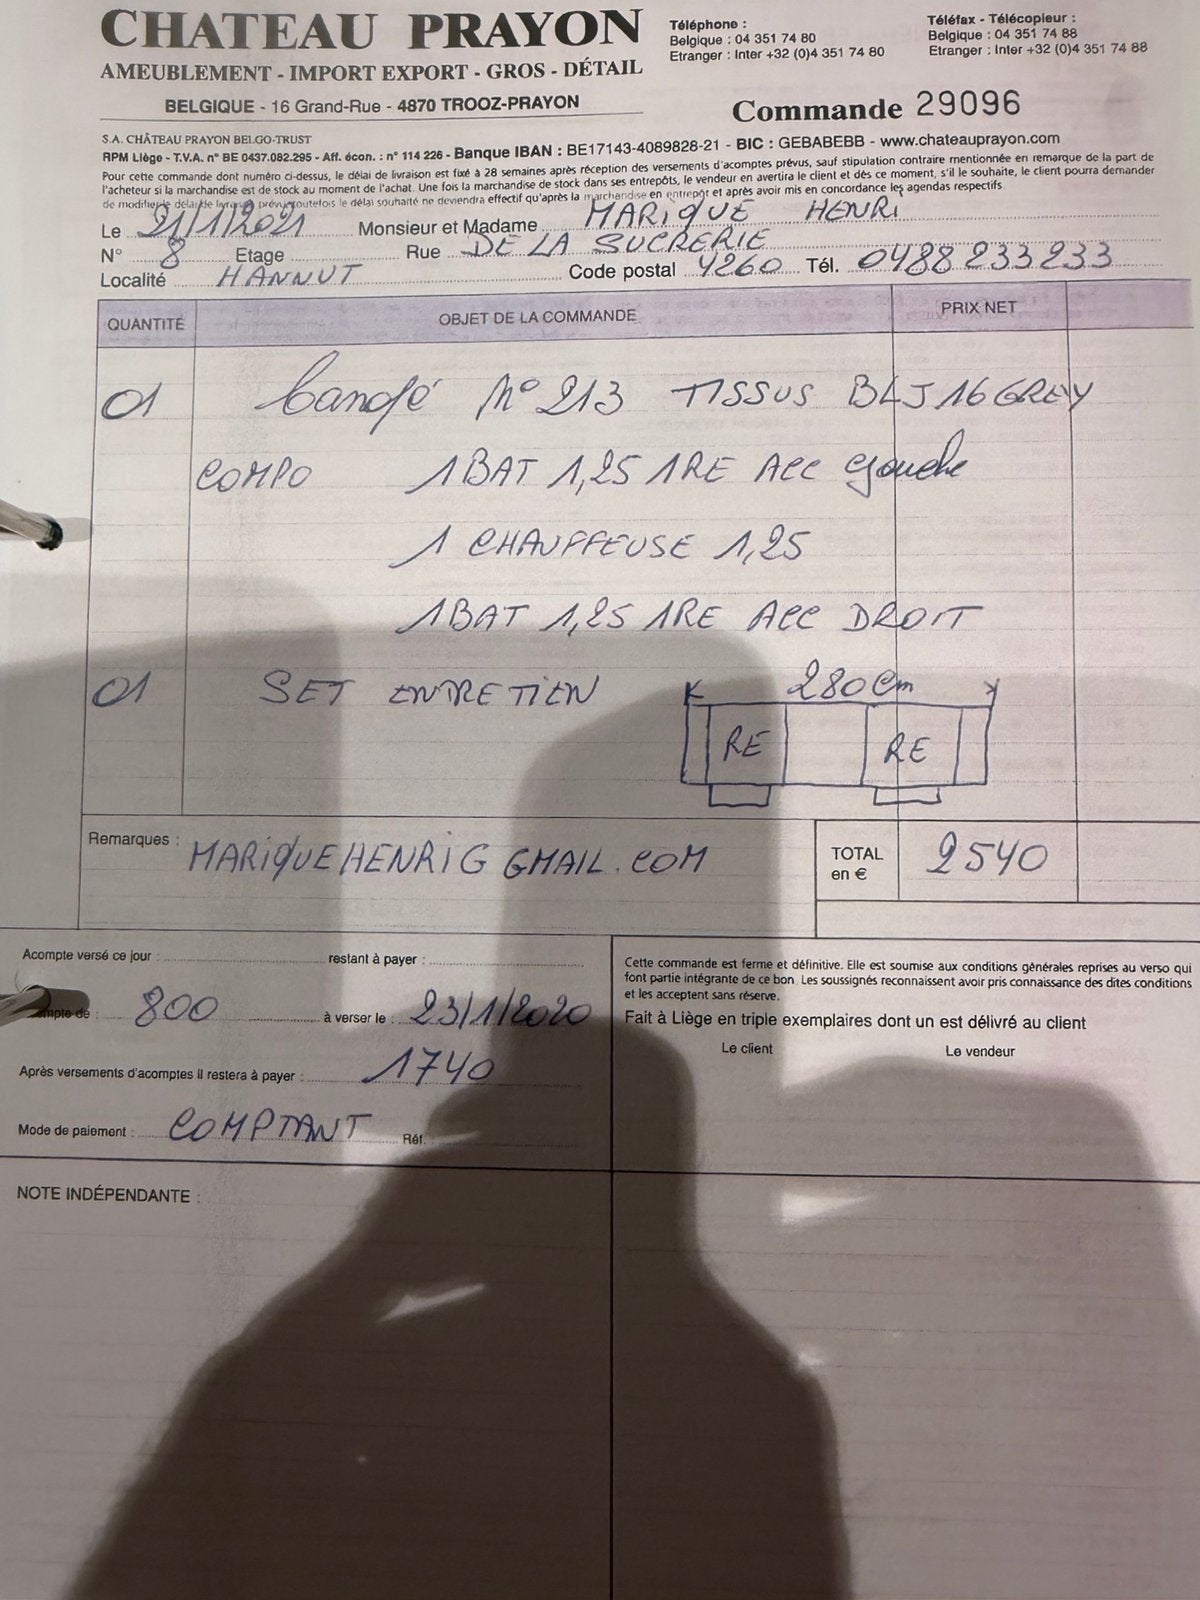 CHATEAU PRAYON
AMEUBLEMENT - IMPORT EXPORT - GROS - DÉTAIL
BELGIQUE - 16 Grand-Rue - 4870 TROOZ-PRAYON
Téléphone :
Belgique : 04 351 74 80
Etranger : Inter +32 (0)4 351 74 80
Téléfax - Télécopieur :
Belgique : 04 351 74 88
Etranger : Inter +32 (0)4 351 74 88
Commande 29096
S.A. CHÂTEAU PRAYON BELGO-TRUST
RPM Liège - T.V.A. n° BE 0437.082.295 - Aff. écon. : n° 114 226 - Banque IBAN : BE17143-4089828-21 - BIC : GEBABEBB - www.chateauprayon.com
Pour cette commande dont numéro ci-dessus, le délai de livraison est fixé à 28 semaines après réception des versements d'acomptes prévus, sauf stipulation contraire mentionnée en remarque de la part de
l'acheteur si la marchandise est de stock au moment de l'achat. Une fois la marchandise de stock dans ses entrepôts, le vendeur en avertira le client et dès ce moment, s'il le souhaite, le client pourra demander
de modifier le délai de livraison prévu toutefois le délai souhaité ne deviendra effectif qu'après la marchandise en entrepôt et après avoir mis en concordance les agendas respectifs
Le 21/1/2021 Monsieur et Madame MARIQUE HENRI
N° 8 Etage Rue DE LA SUCRERIE
Localité HANNUT Code postal 4260 Tél. 0488 233 233
QUANTITÉ OBJET DE LA COMMANDE PRIX NET
01 Canapé N° 213 TISSUS BLJ 16 GREY
COMPO 1 BAT 1,25 1RE ACC gauche
1 CHAUFFEUSE 1,25
1 BAT 1,25 1RE ACC DROIT
01 SET ENTRETIEN 280 cm
RE RE
Remarques : MARIQUEHENRIG GMAIL.COM
TOTAL
en €
2540
Acompte versé ce jour : restant à payer :
mpte de : 800 à verser le : 23/1/2020
Après versements d'acomptes il restera à payer : 1740
Mode de paiement : COMPTANT Réf.
Cette commande est ferme et définitive. Elle est soumise aux conditions générales reprises au verso qui
font partie intégrante de ce bon. Les soussignés reconnaissent avoir pris connaissance des dites conditions
et les acceptent sans réserve.
Fait à Liège en triple exemplaires dont un est délivré au client
Le client Le vendeur
NOTE INDÉPENDANTE :